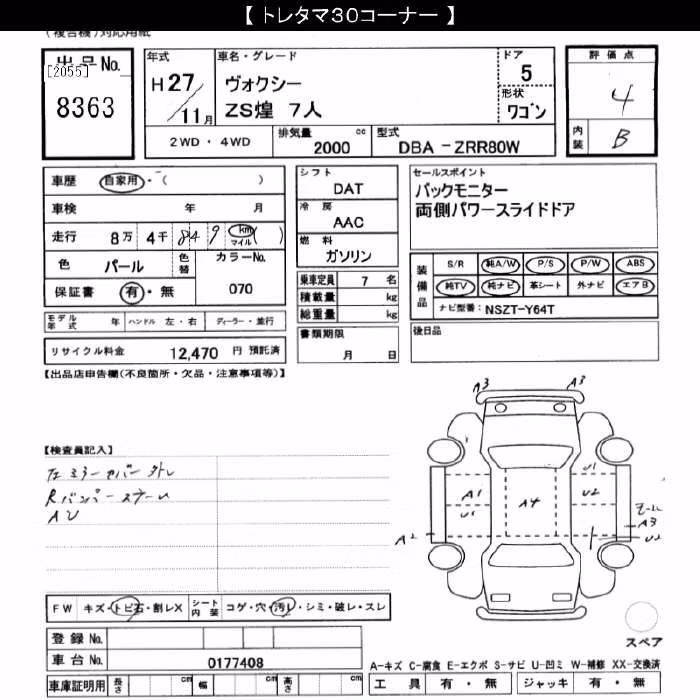 【 トレタマ30コーナー 】
(複合機)対応用紙
出品No.
[2055]
8363
年式
H 27/11月
車名・グレード
ヴォクシー
ZS煌 7人
ドア
5
形状
ワゴン
2WD ・ 4WD
排気量 cc
2000
型式
DBA -ZRR80W
評価点
4
内装 B
車歴 自家用・( )
車検 年 月
走行 8万 4千 849 km マイル ( )
色 パール 色替 カラーNo.
070
保証書 有・無
シフト
DAT
冷房
AAC
燃料
ガソリン
乗車定員 7 名
積載量 kg
総重量 kg
書類期限
月 日
セールスポイント
バックモニター
両側パワースライドドア
装備品
S/R 純A/W P/S P/W ABS
純TV 純ナビ 革シート 外ナビ エアB
ナビ型番: NSZT-Y64T
後日品
モデル年式 年 ハンドル 左・右 ディーラー・並行
リサイクル料金 12,470 円 預託済
【出品店申告欄(不良箇所・欠品・注意事項等)】
【検査員記入】
左ミラーカバー外レ
Rバンパースナール
AU
A3 A3
A1
U1
A4
U1
U2
A2
A3
U2
FW キズ・トビ石・割レX シート内装 コゲ・穴・汚レ・シミ・破レ・スレ
登録 No.
車台 No. 0177408
車庫証明用 長さ cm 幅 cm 高さ cm
スペア
A-キズ C-腐食 E-エクボ S-サビ U-凹ミ W-補修 XX-交換済
工具 有・無 ジャッキ 有・無